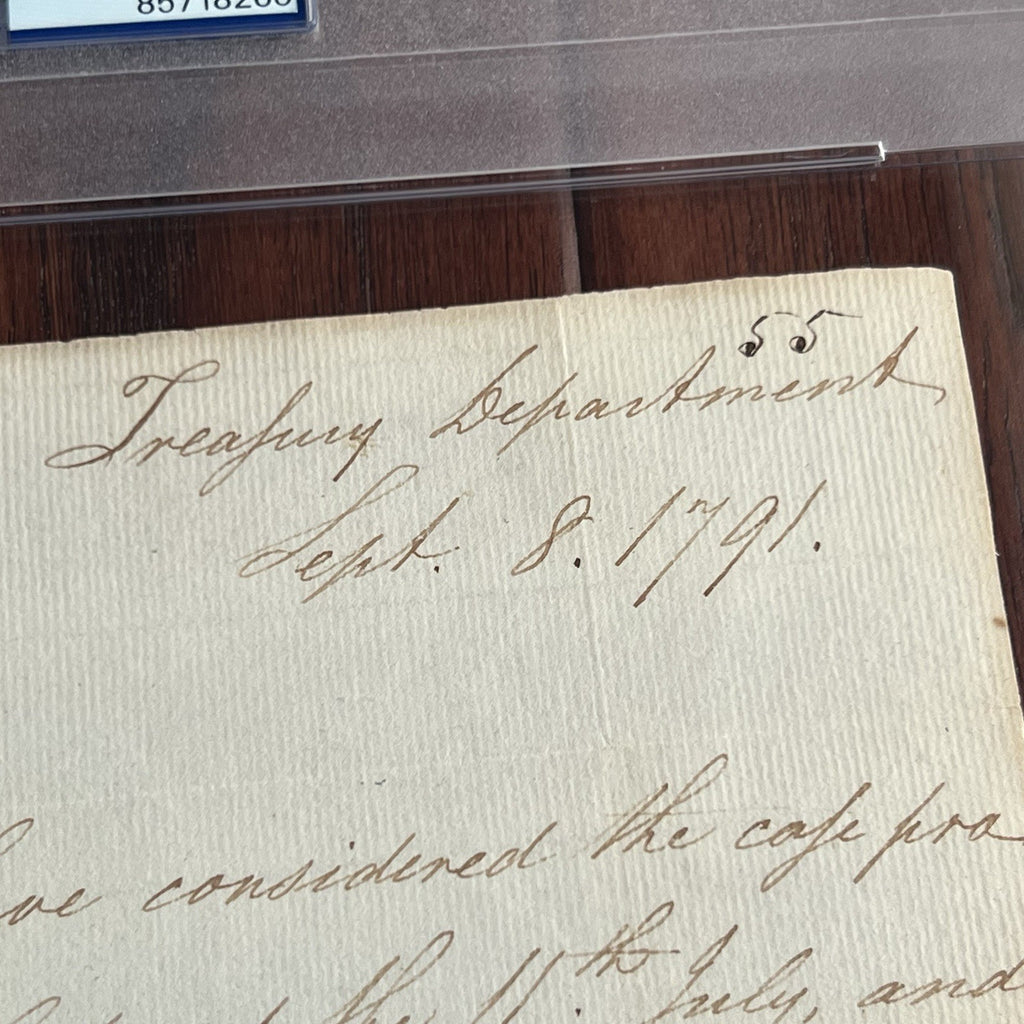 85718200
55
Treaſury Department
Sept. 8. 1791.
ve considered the caſe pro
the 11.th July, and